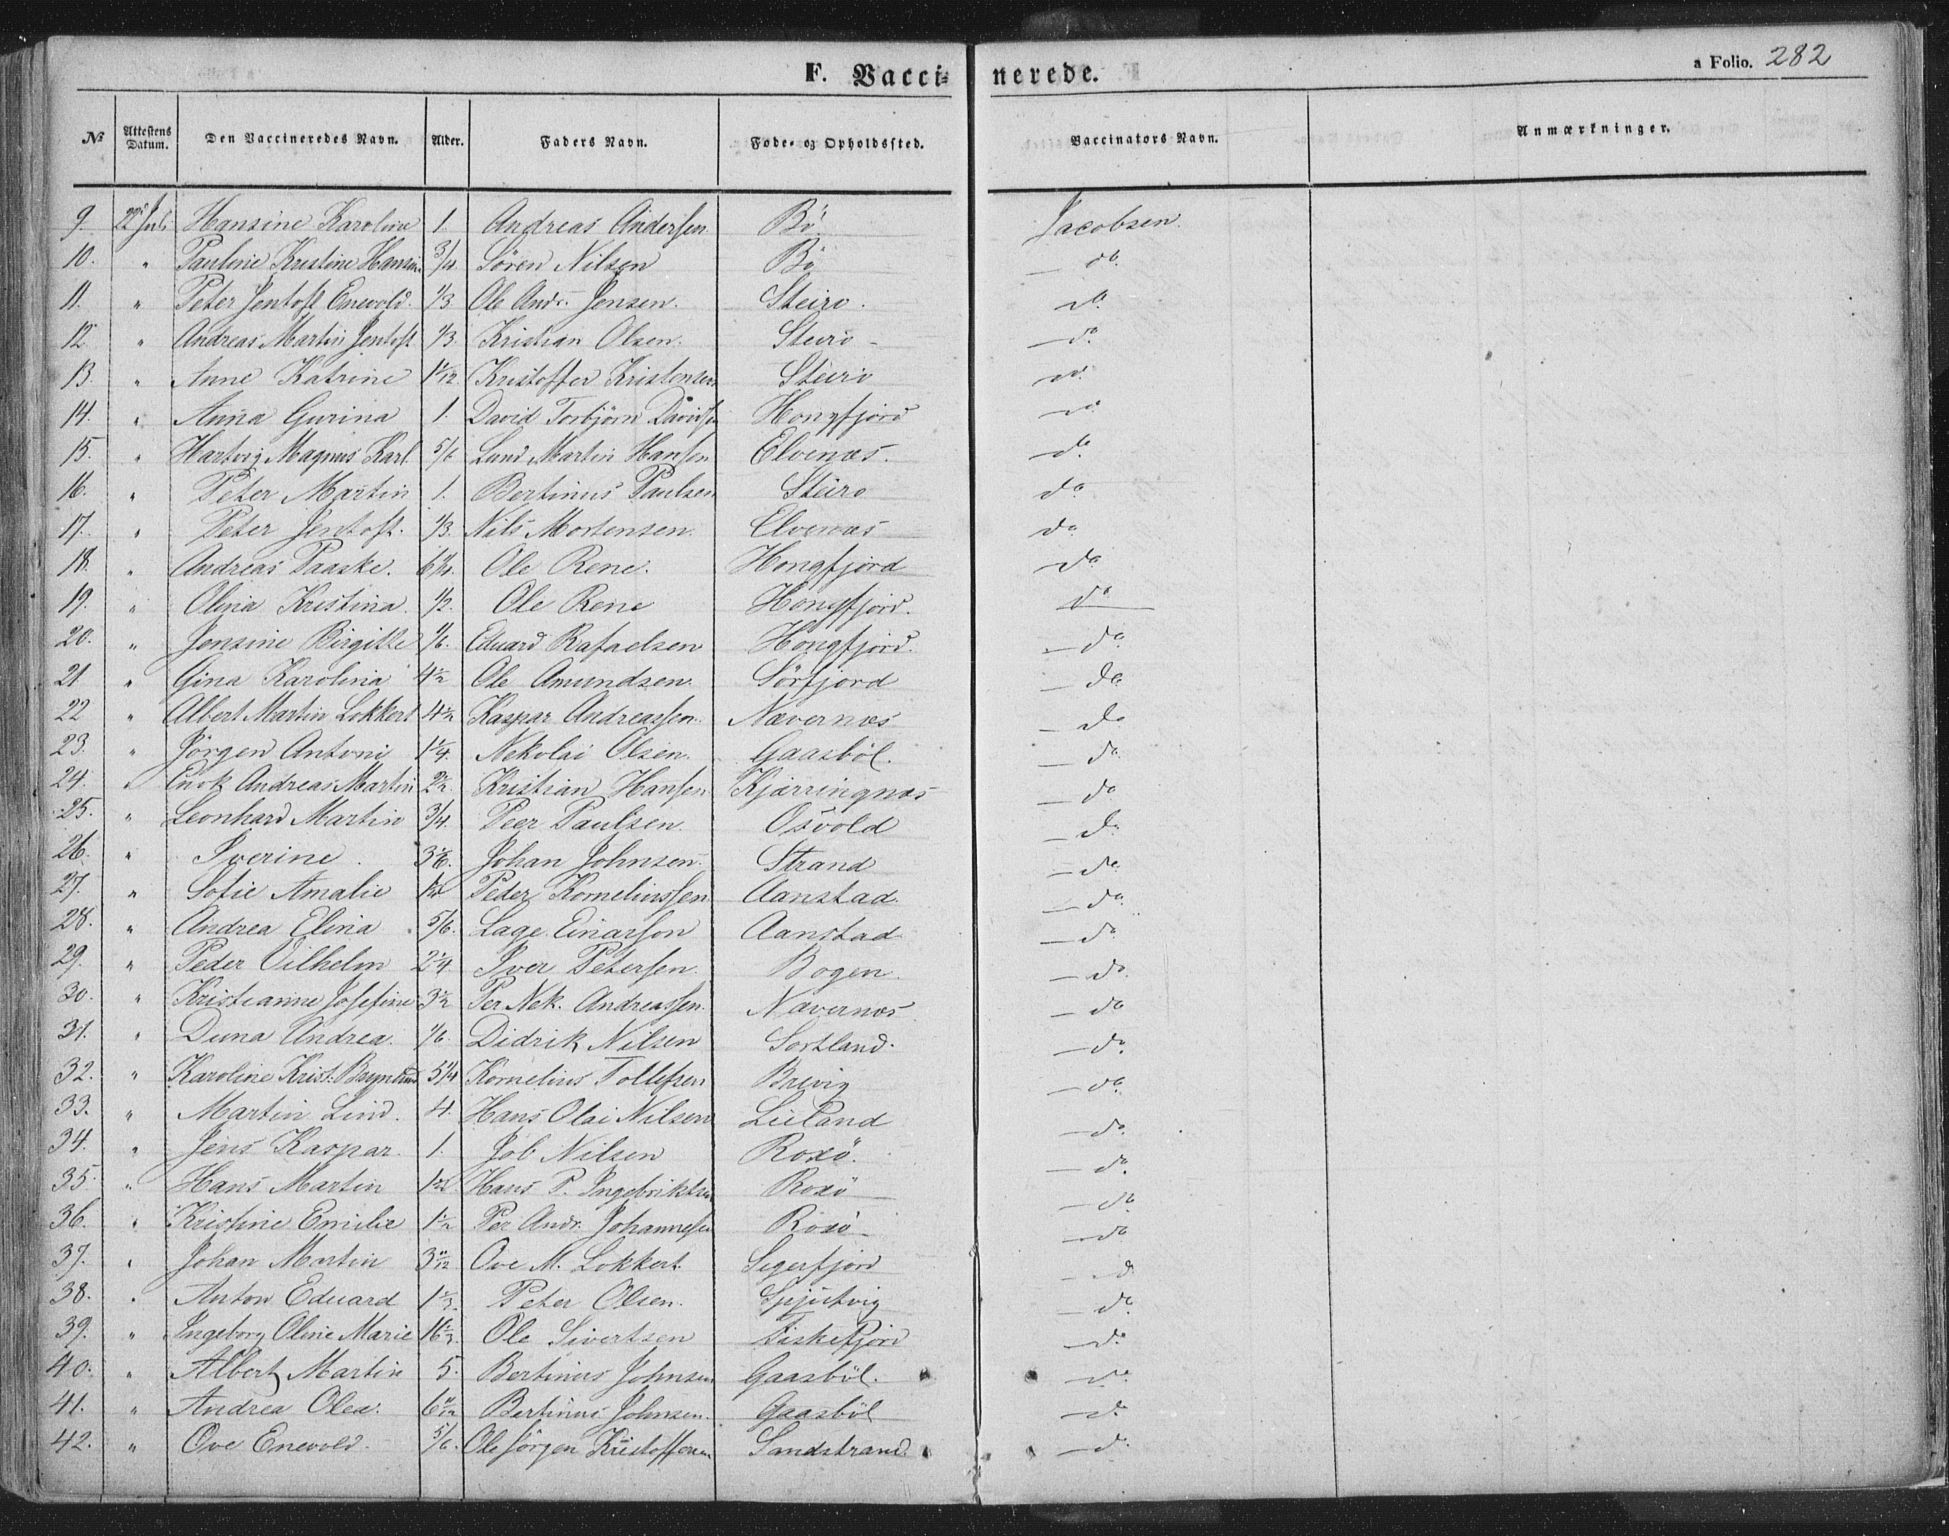 F. Vaccinerede.
a Folio. 282
No Attestens Datum. Den Vaccineredes Navn. Alder. Faders Navn. Føde- og Opholdssted. Vaccinators Navn. Anmærkninger.
9. 22 Juli Hansine Karoline 1. Andreas Andersen Bö Jacobsen.
10. " Pauline Kristine Hansine 3/4 Sören Nilsen Bö do
11. " Peter Jentoft Enevold. 1/3 Ole Andr. Jensen. Steiro. do
12 " Andreas Martin Jentoft 1/3. Kristian Olsen. Steiro do
13. " Anne Katrine Kristoffer Kristensen Steiro do
14. " Anna Gurina 1. David Torbjörn Davidsen Hongfjord do
15. " Hartvig Magnus Karl. 5/6 Lund Martin Hansen Elvenæs. do
16. " Peter Martin 1. Bertinus Paulsen Steiro do
17. " Peter Jentoft. 1/3. Nils Mortensen. Elvenæs do
18. " Andreas Paaske. Ole Rene. Hongfjord do
19. " Olina Kristina 1/2. Ole Rene Hongfjord. do
20. " Jensine Birgitte 1/6. Eduard Rafaelsen Hongfjord. do
21. " Gina Karolina 4 1/2 Ole Amundsen. Sörfjord do
22 " Albert Martin Lokkert 4 1/2 Kaspar Andreassen. Nævernæs do
23. " Jörgen Antoni 1 1/4. Nekolai Olsen. Gaasböl. do
24. " Andreas Martin 2 1/2. Kristian Hansen Kjærringnæs do
25. " Leonhard Martin 3/4. Peer Paulsen. Osvold do
26. " Iverine. 3 1/6. Johan Johnsen. Strand do
27. " Sofie Amalie Peder Korneliussen Aanstad. do
28. " Andrea Elina 5/6. Lage Einarson Aanstad do
29. " Peder Vilhelm 2 1/4. Iver Petersen. Bogen. do
30. " Kristianne Josefine 3 1/2 Per Nek. Andreassen. Nævernæs do
31. " Duna Andrea. 1/6. Didrik Nilsen Sortland. do
32. " Karoline Krist. 5 1/4 Kornelius Tollefsen Brevig do
33. " Martin Lind. 4. Hans Olai Nilsen Leiland do
34. " Jens Kaspar. 1. Job Nilsen Roxö. do
35. " Hans Martin Hans P. Ingebriktsen Roxö do
36. " Kristine Emilie 1 1/2 Per Andr. Johannesen Roxö do
37. " Johan Martin 3 11/12 Ove M. Lokkert. Sigerfjord do
38. " Anton Eduard 1 1/3. Peter Olsen. do
39. " Ingeborg Oline Marie 16 1/2. Ole Sivertsen Fiskefjord do
40. " Albert Martin 5. Bertinus Johnsen Gaasböl. do
41. " Andrea Olea. 6 11/12 Bertinus Johnsen. Gaasböl do
42. " Ove Enevold. 5/6. Ole Jörgen Kristoffersen Sandstrand. do